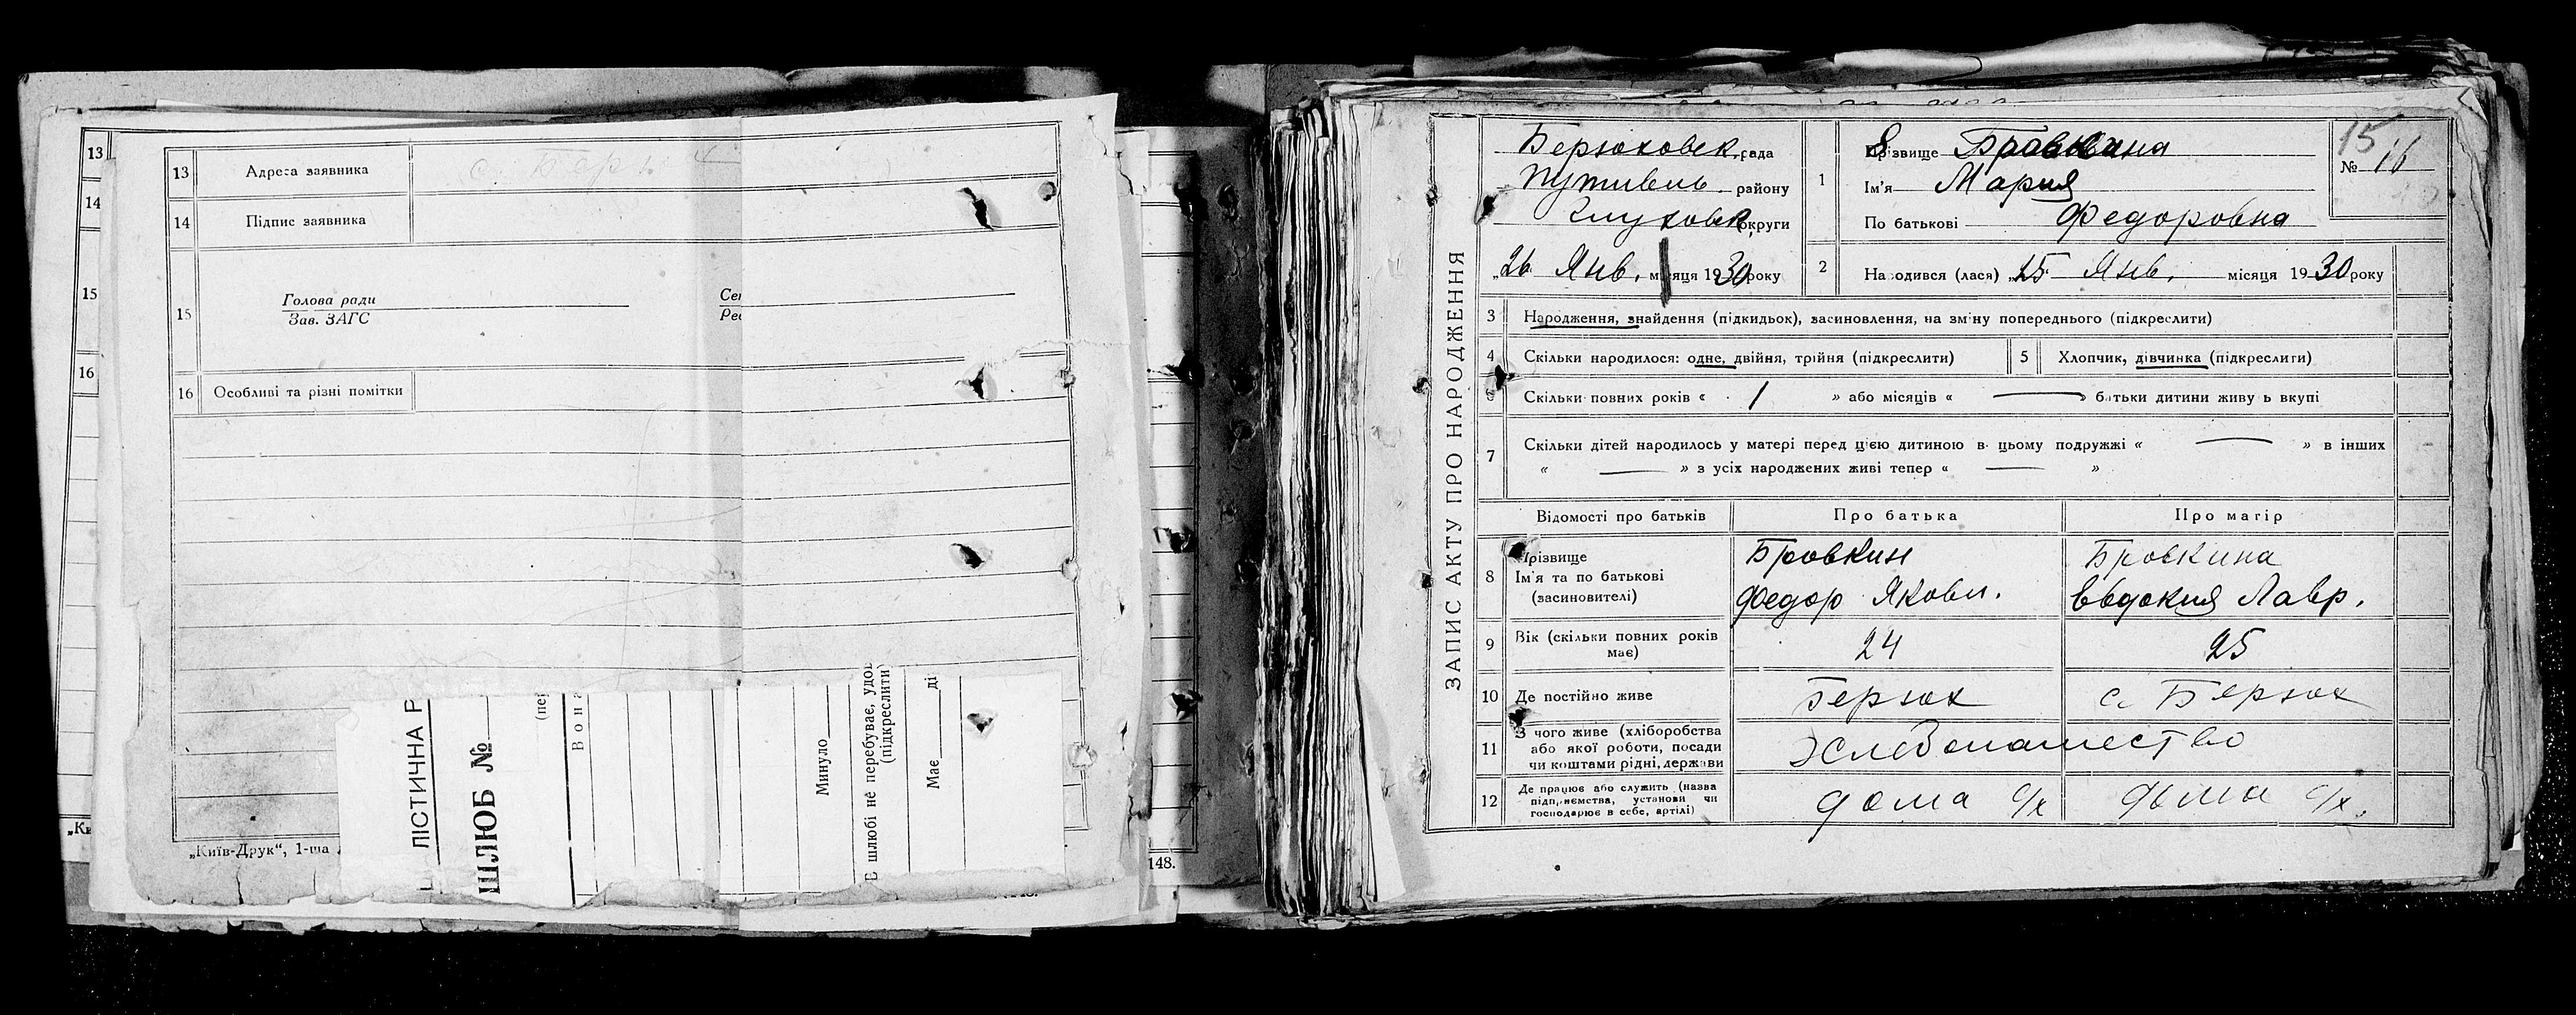 13
14
15
16
„Ки
13 Адреса заявника с. Берю
14 Підпис заявника
15 Голова ради
Зав. ЗАГС
Сек
Реє
16 Особливі та різні помітки
ЛІСТИЧНА Р
ШЛЮБ №
(пер
Вона
Минуло
В шлюбі не перебуває, удов
(підкреслити)
Має ді
„Київ-Друк“, 1-ша
148.
ЗАПИС АКТУ ПРО НАРОДЖЕННЯ
Берюховск. рада
Путивль. району
Глуховск. округи
„26 Янв. місяця 1930 року
1 Прізвище Бровкина
Ім'я Мария
По батькові Федоровна
15
№ 16
2 Народився (лася) „25 Янв. місяця 1930 року
3 Народження, знайдення (підкидьок), засиновлення, на зміну попереднього (підкреслити)
4 Скільки народилося: одне, двійня, трійня (підкреслити) 5 Хлопчик, дівчинка (підкреслити)
6 Скільки повних років « 1 » або місяців « — » батьки дитини живуть вкупі
7 Скільки дітей народилось у матері перед цією дитиною в цьому подружжі « — » в інших
« — » з усіх народжених живі тепер « — »
Відомості про батьків Про батька Про матір
8 Прізвище Бровкин Бровкина
Ім'я та по батькові
(засиновителі) Федор Яковл. Евдокия Лавр.
9 Вік (скільки повних років
має) 24 25
10 Де постійно живе Берюх с. Берюх
11 З чого живе (хліборобства
або якої роботи, посади
чи коштами рідні, держави хлебопашество
12 Де працює або служить (назва
підприємства, установи чи
господарює в себе, артілі) дома с/х дома с/х.